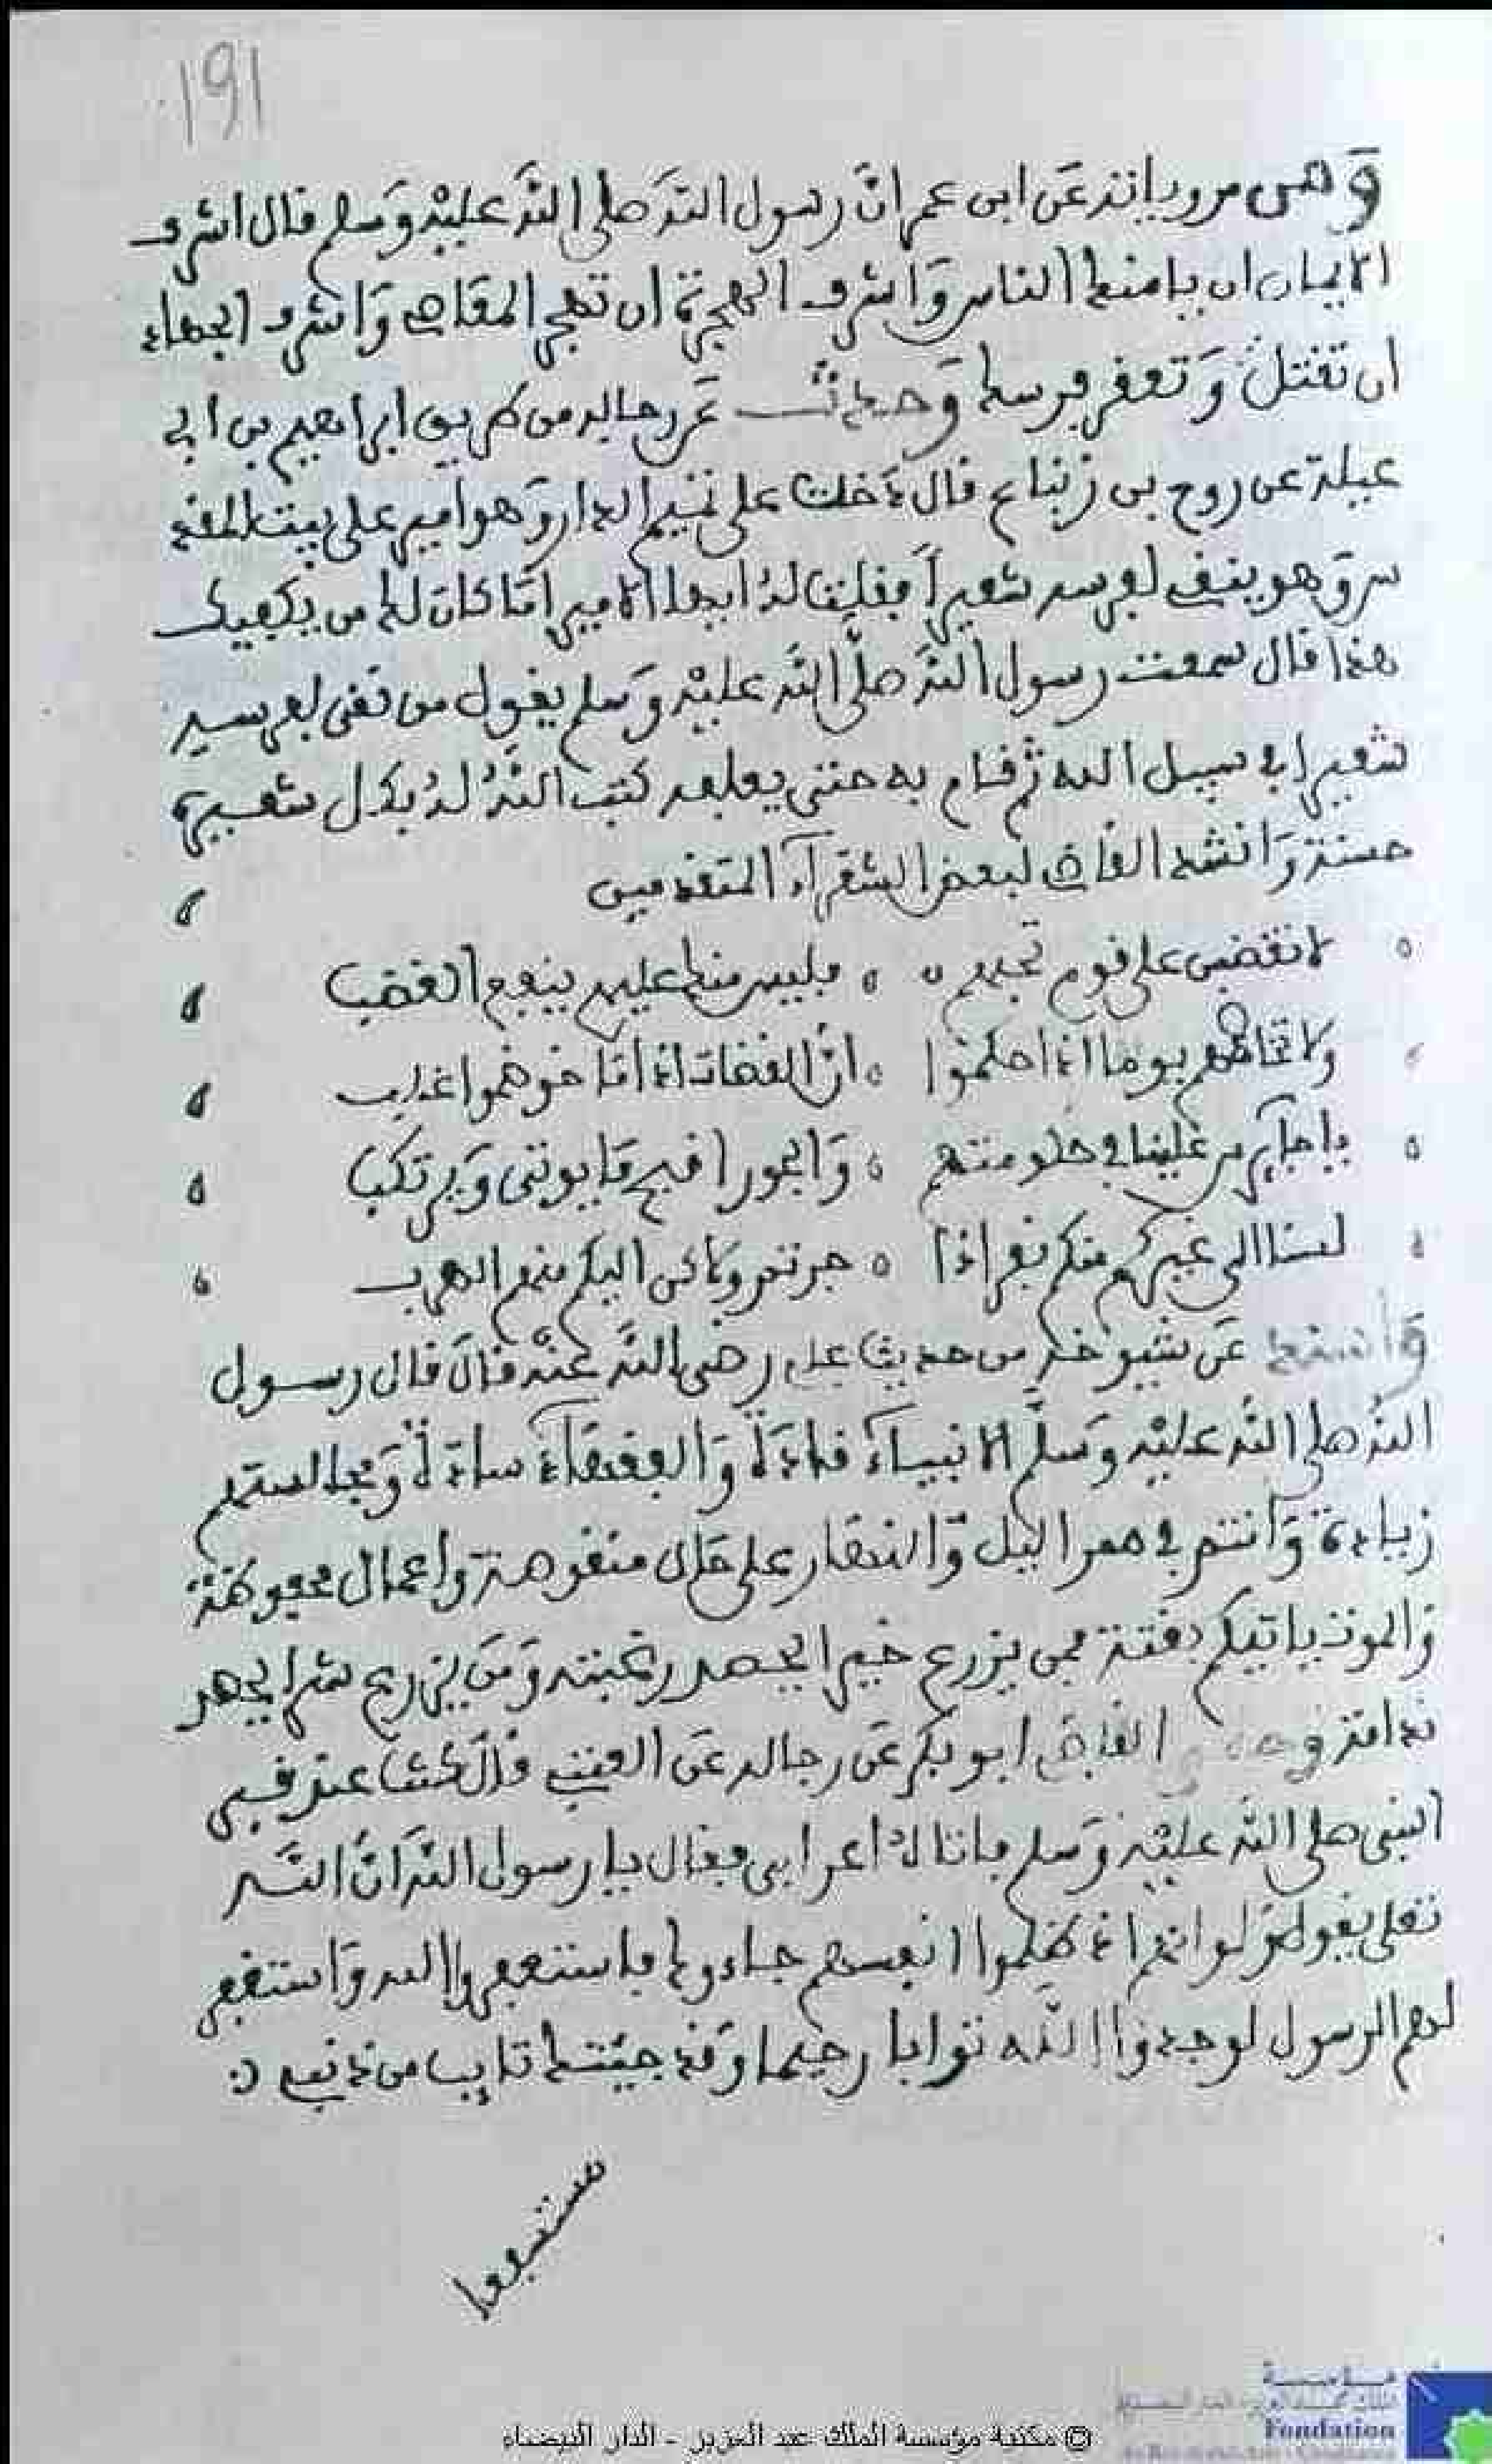 191
وَمن مروياته عَن ابن عمر انَّ رسول اللهَ صلى اللهَ عليْه وَسلم قال اشرف
الايمان ان يامنك الناس وَاشرف الهجرة ان تهجر المعَاصي وَاشرف الجهاد
ان تقتلَ وَتعقر فرسك وَحدثت عَن رجاله من طريق ابراهيم بن ابي
عبلة عن روح بن زنباع قال دَخلت على تميم الدار وَهو امير على بيت المقد
س وَهو ينقي لفرسه شعيراً فقلت لهُ ايها الامير امَا كان لك من يكفيك
هذا قال سمعت رسول اللهَ صلّى اللهَ عليْه وَسلم يقول من نقى لفرسه
شعيرا في سبيل الله ثم قام به حتى يعلفه كتب اللهُ لهُ بكل شعيرة
حسنة وَانشد القاضي لبعض الشعَرآء المتقدمين
لا تغضبن على قوم تحبهم فليس منك عليهم ينفع الغضب
ولا تخاصمهم يوما اذا حكموا انّ القضاة اذا ما خوصموا غلب
يا جآيرين علينا في حكومتهم وَالجور اقبح مَا يوتى وَيرتكب
لسنا الى غيركم منكم نفر اذا جرتم ولاكن اليكم منكم الهرب
عَن شيوخه من حديث علي رضى اللهَ عنْه قالَ قال رسول
اللهَ صلى اللهُ عليْه وَسلَّم الانبيآء قادَةٌ وَالفقهَآء سادَةٌ وَمجالستهم
زيادة وَانتم في ممر اليل وَالنهَار على ءاجال منقوصة واعمال محفوظة
وَالموت ياتيكم بغتة فمن يزرع خيرا يحصد رغبته وَمَن يزرع شرا يحصد
ندامة القاضي ابو بكر عَن رجاله عَن العتبي قالَ كنت عند قبر
النبى صلى اللهُ عليْه وَسلم فاتاهُ اعرابى فقال يا رسول اللهَ انَّ اللهَ
تعلى يقول وَلو انهم اذ ظلموا انفسهم جاءوك فاستغفروا الله وَاستغفر
لهم الرسول لوجدوا اللهَ توابا رحيما وَقد جيتك تايب من ذنبي
مستشفعا
© مكتبة مؤسسة الملك عبد العزيز - الدار البيضاء
مؤسسة
Fondation